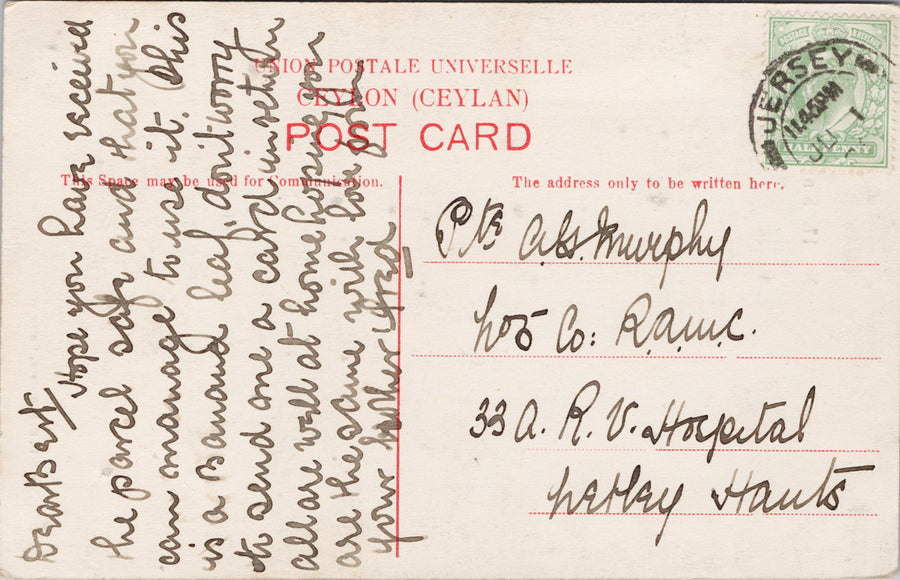 UNION POSTALE UNIVERSELLE
CEYLON (CEYLAN)
POST CARD
This Space may be used for Communication.
The address only to be written here.
POSTAGE
JERSEY
11.45PM
JU 1
HALFPENNY
Dear Bert
Hope you have received
the parcel safe and that you
can manage to use it. This
is a Banana leaf, don't worry
to send me a card in return
all are well at home hoping you
are the same with love from
your Brother Fred
Pte A.S. Murphy
No 5 Co: R.A.M.C.
33 A. R. V. Hospital
Netley Hants